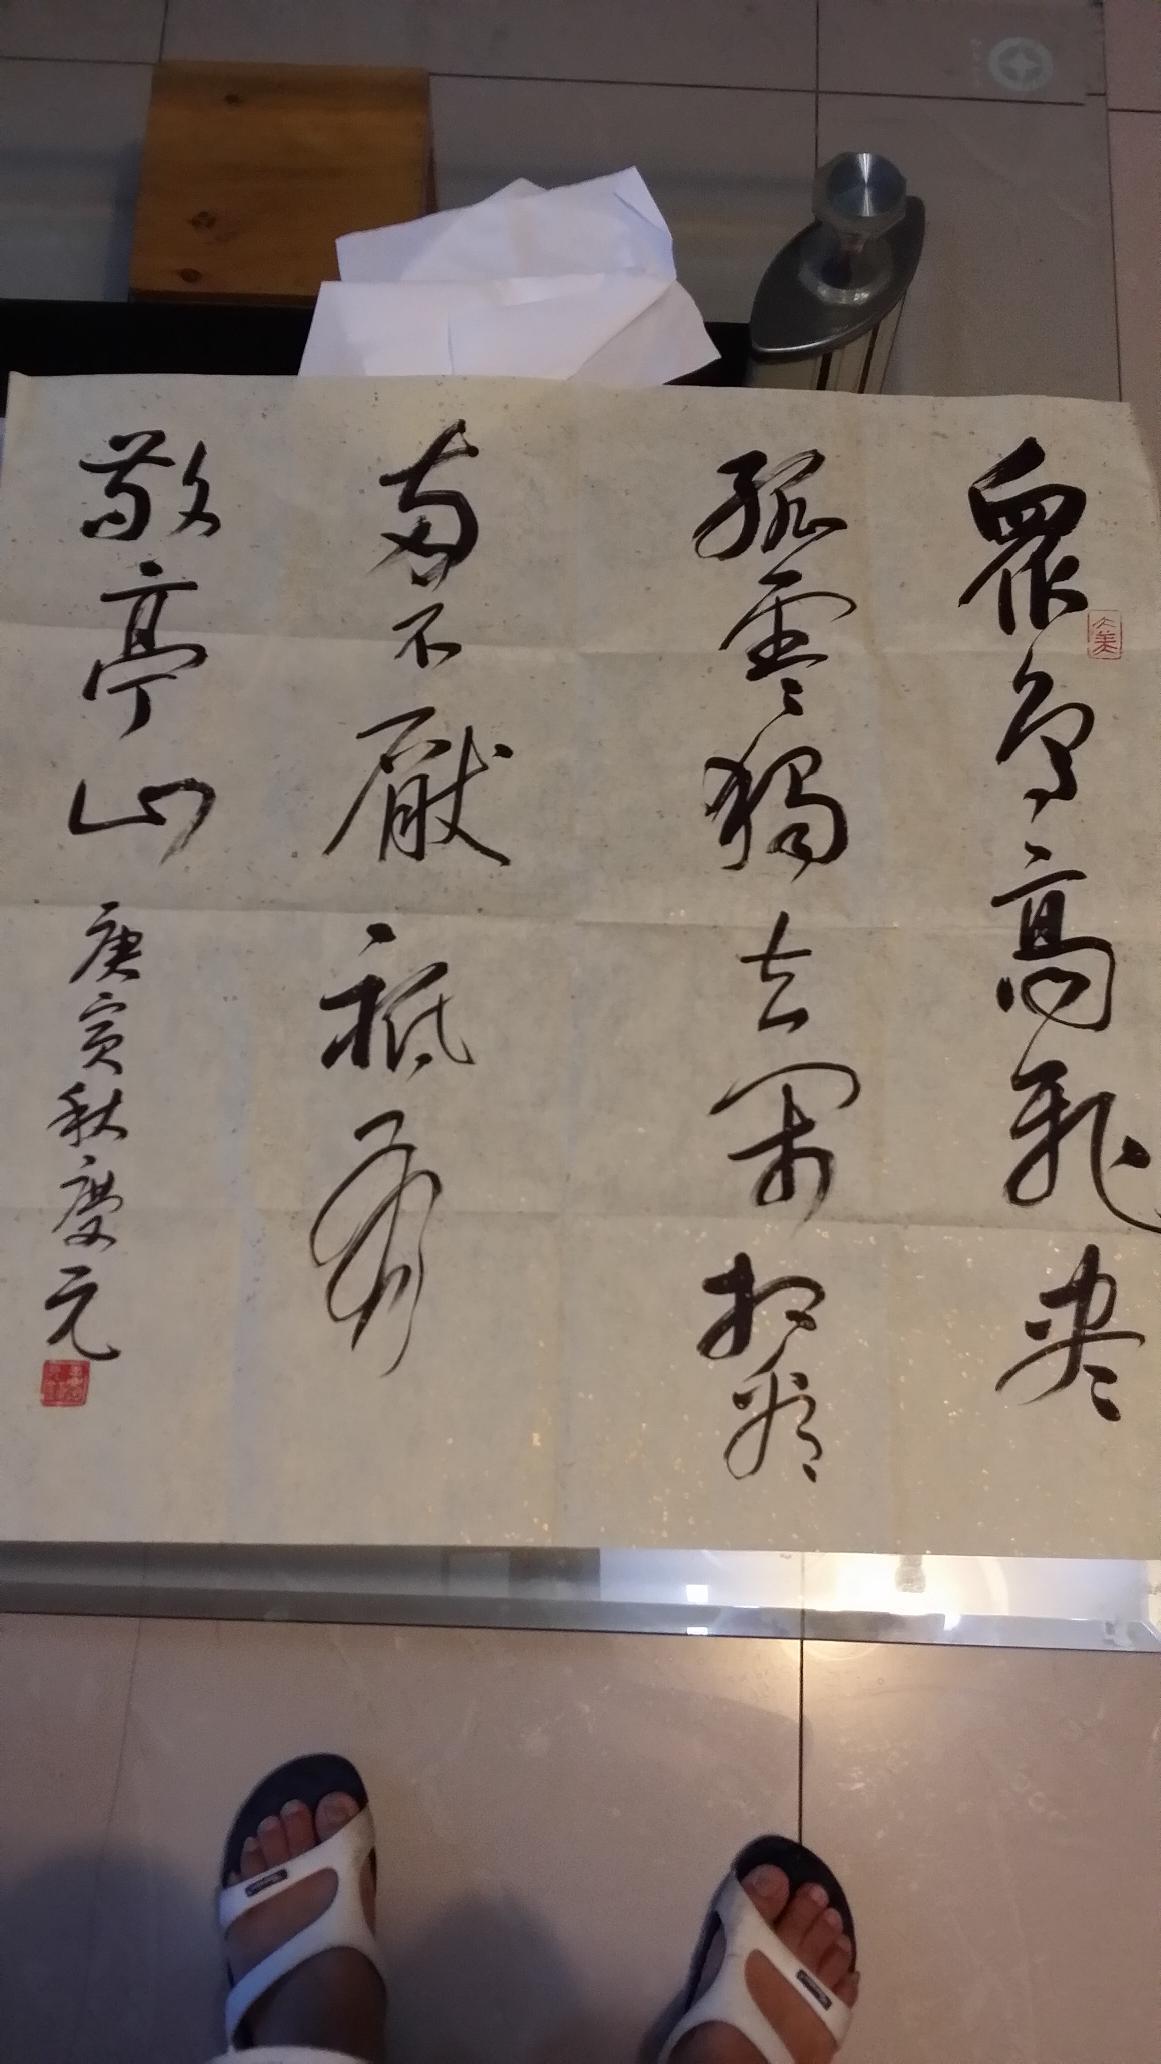 眾鳥高飛盡
孤雲獨去閑相看
兩不厭祇有
敬亭山 庚寅秋慶元